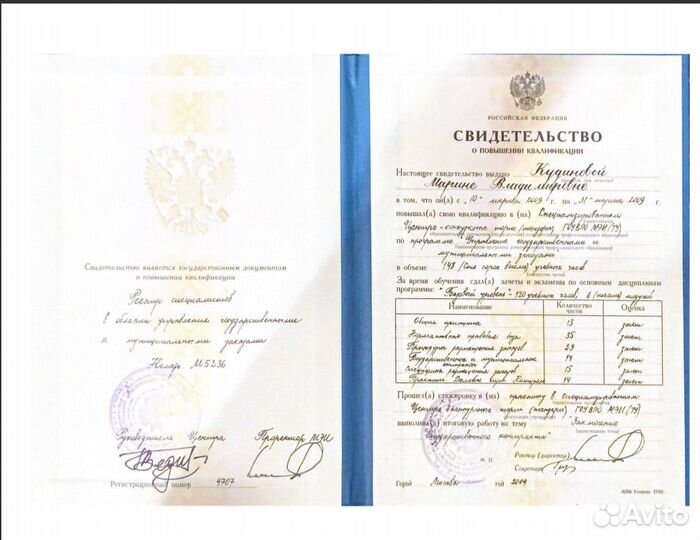 Свидетельство является государственным документом
о повышении квалификации
Реестр специалистов
в области управления государственными
и муниципальными заказами
Номер М5236
Руководитель Центра Проректор МЭИ
Регистрационный номер 4707
РОССИЙСКАЯ ФЕДЕРАЦИЯ
СВИДЕТЕЛЬСТВО
О ПОВЫШЕНИИ КВАЛИФИКАЦИИ
Настоящее свидетельство выдано Кудиновой
Марине Владимировне
в том, что он(а) с „10" марта 2009 г. по „31" марта 2009 г.
повышал(а) свою квалификацию в (на) Специализированном
Центре-конкурсные торги (тендеры) ГОУВПО МЭИ(ТУ)
по программе „Управление государственными и
муниципальными заказами
в объеме 148 (Сто сорок восемь) учебных часов
За время обучения сдал(а) зачеты и экзамены по основным дисциплинам
программы: "Базовый уровень" - 120 учебных часов, 6 (шесть) модулей
Наименование Количество часов Оценка
Общие принципы 13 зачет
Нормативная правовая база 35 зачет
Процедуры размещения заказов 29 зачет
Государственные и муниципальные контракты 14 зачет
размещения заказов 15 зачет
14 зачет
Прошел(а) стажировку в (на) практику в специализированном
Центре конкурсные торги (тендеры) ГОУВПО МЭИ(ТУ)
выполнил(а) итоговую работу на тему "Заключение
государственного контракта"
М.П. Ректор (директор)
Секретарь
Город Москва год 2009
Avito